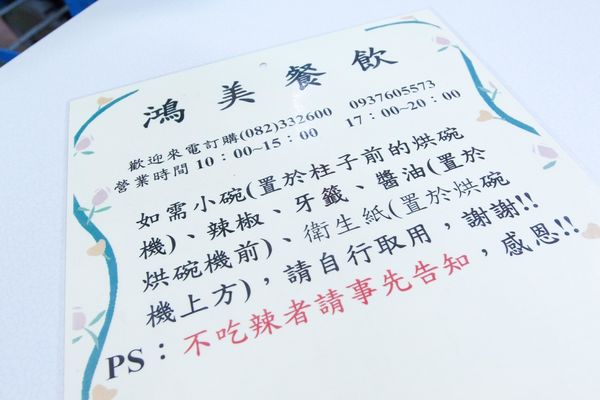 鴻美餐飲
歡迎來電訂購(082)332600 0937605573
營業時間10：00~15：00 17：00~20：00
如需小碗(置於柱子前的烘碗
機)、辣椒、牙籤、醬油(置於
烘碗機前)、衛生紙(置於烘碗
機上方)，請自行取用，謝謝!!
PS：不吃辣者請事先告知，感恩!!